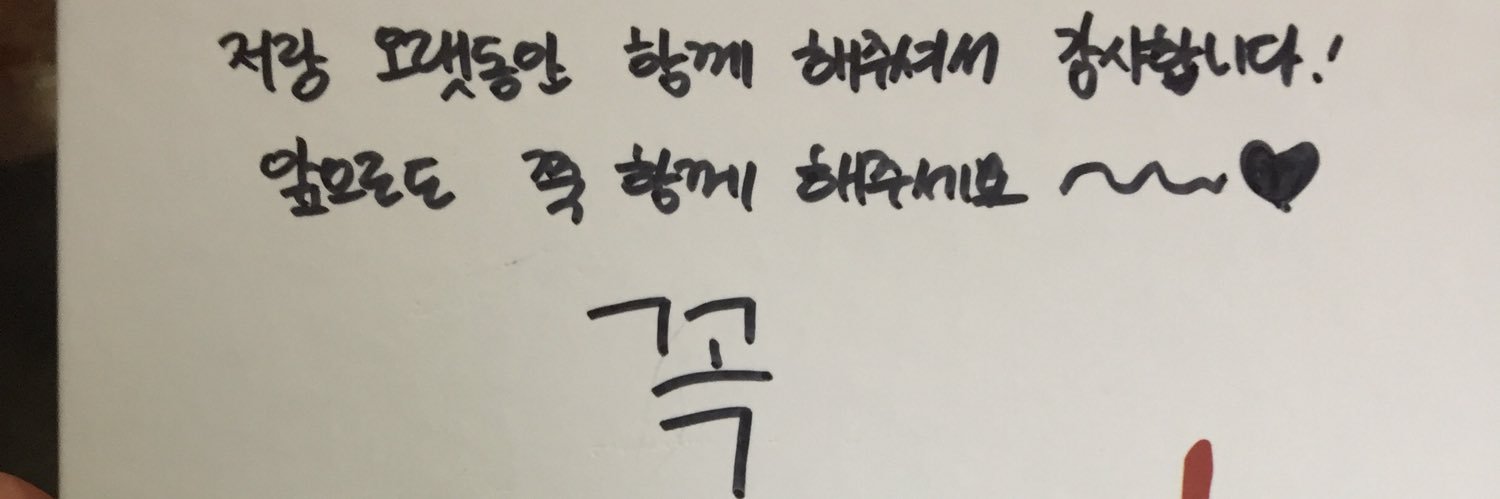 저랑 오랫동안 함께 해주셔서 감사합니다!
앞으로도 쭉 함께 해주세요 ~~♥
꼭